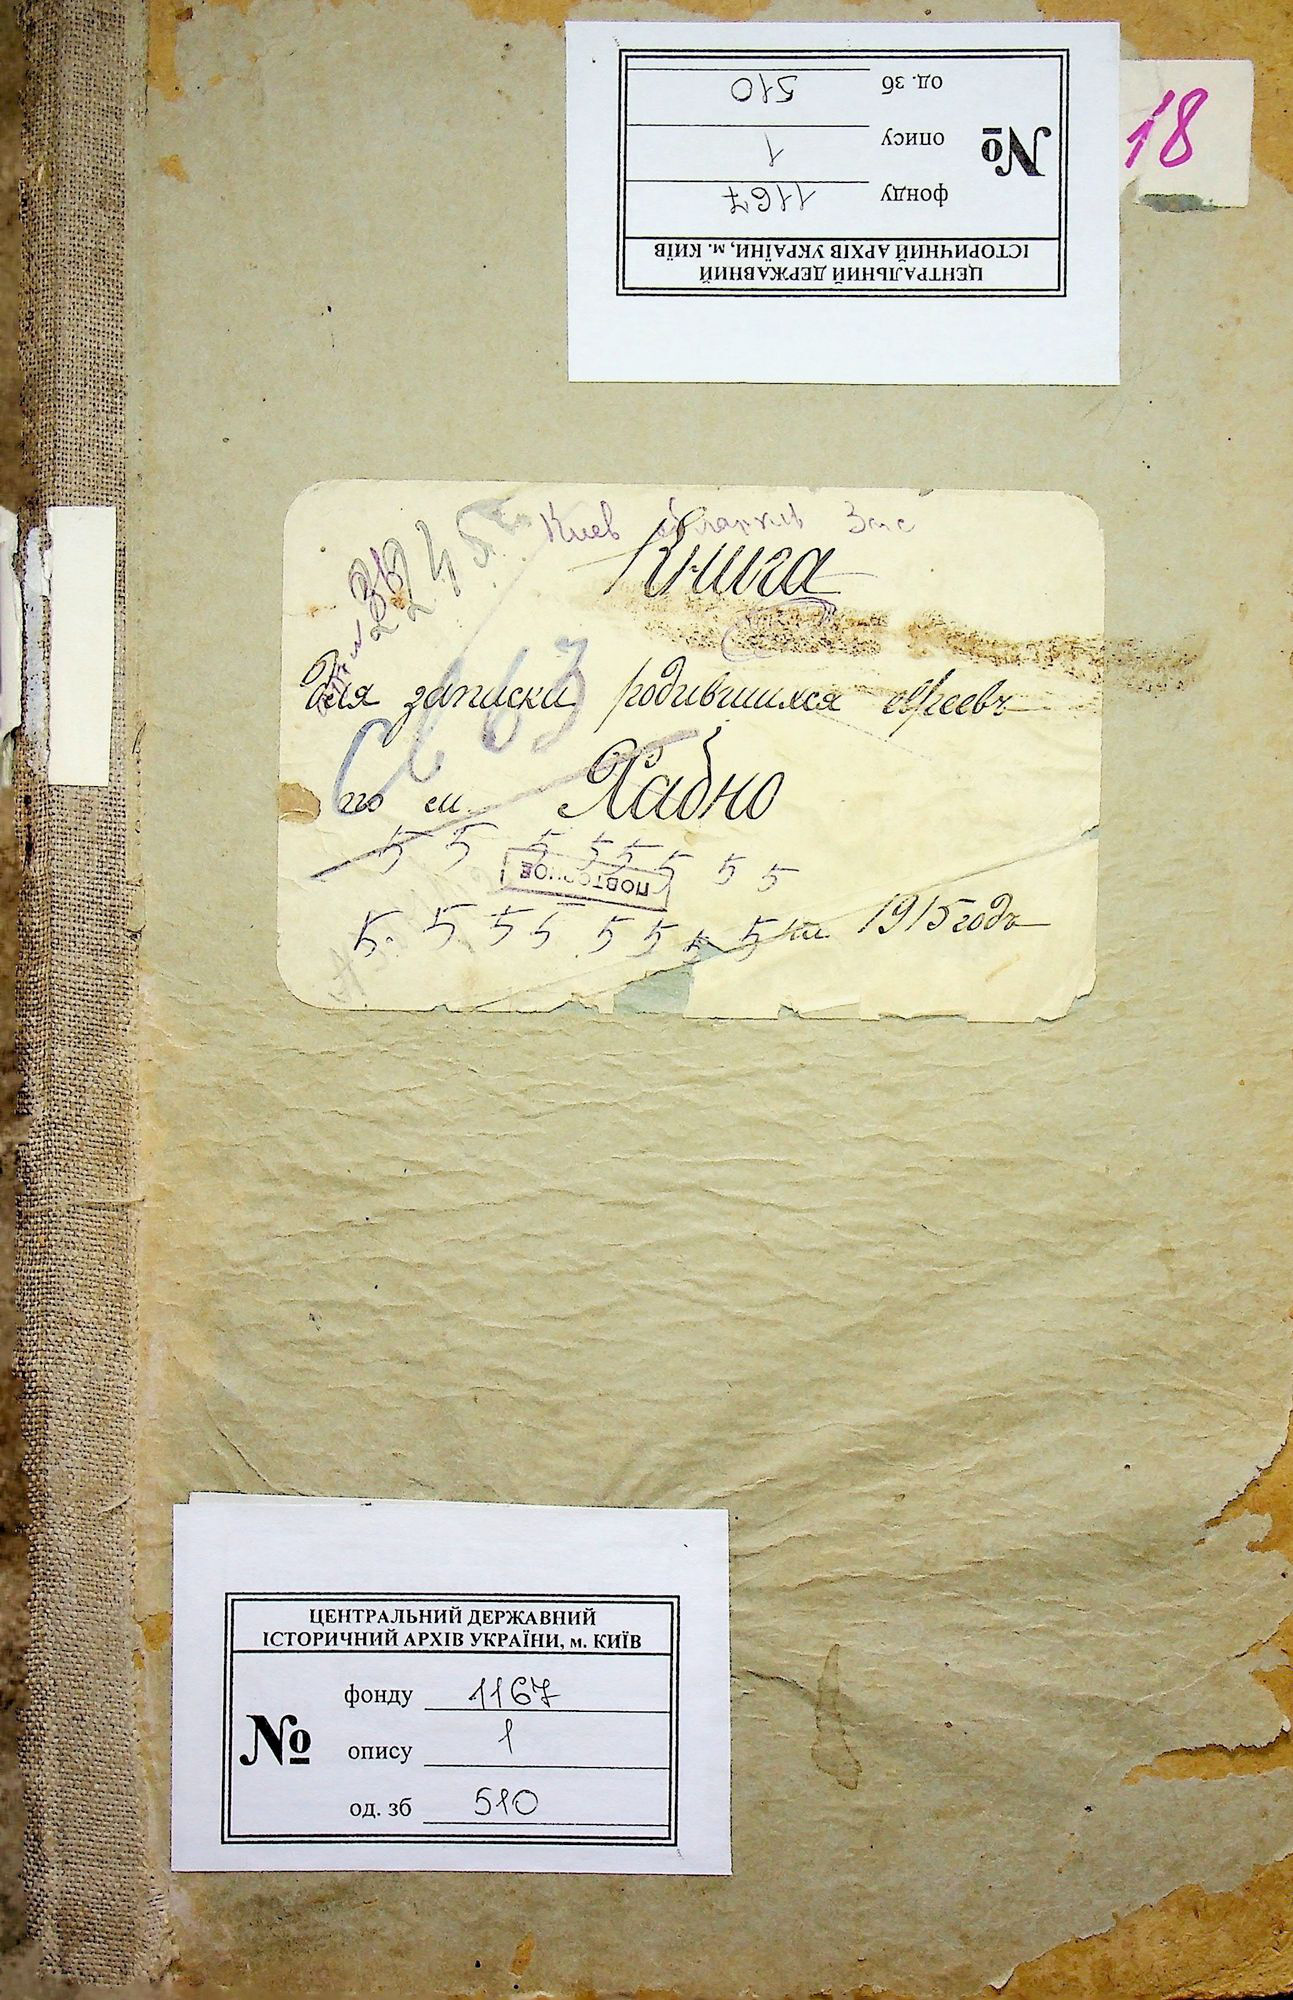 ЦЕНТРАЛЬНИЙ ДЕРЖАВНИЙ
ІСТОРИЧНИЙ АРХІВ УКРАЇНИ, м. КИЇВ
фонду 1167
№ опису 1
од. зб 510
18
Киев
Книга
для записки родившихся евреевъ
663
по м. Хабно
5 5 5 5 5 5 5 5
ПОВТОРНОЕ
5. 5 5 5 5 5 5 5 на 1915 годъ
ЦЕНТРАЛЬНИЙ ДЕРЖАВНИЙ
ІСТОРИЧНИЙ АРХІВ УКРАЇНИ, м. КИЇВ
фонду 1167
№ опису 1
од. зб 510